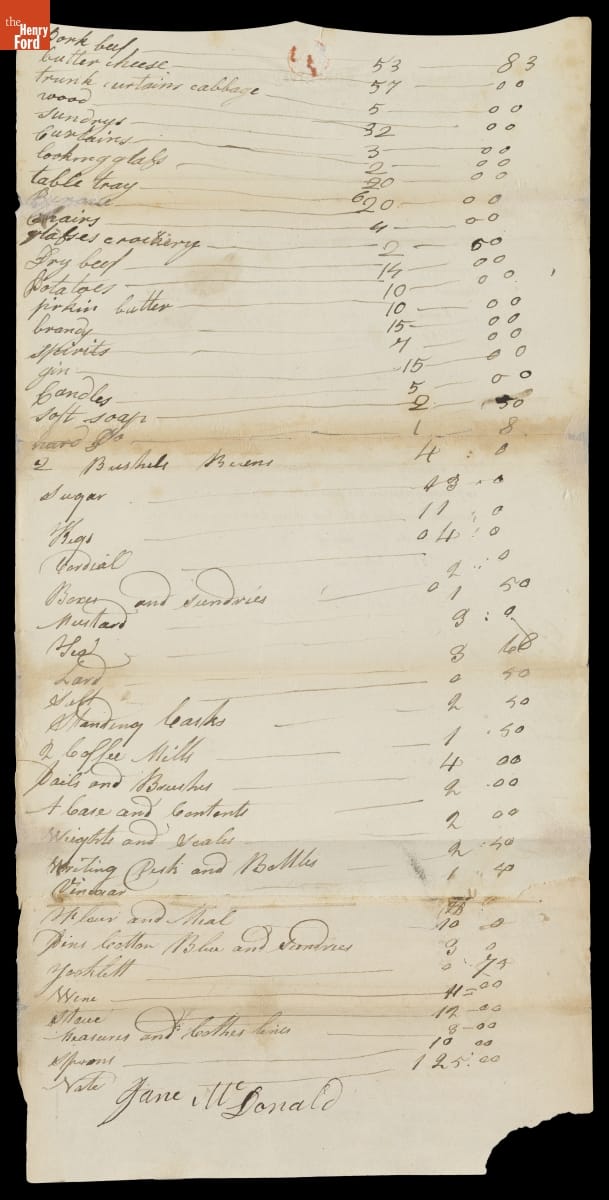 the
Henry
Ford
Pork beef 53 83
butter cheese 57 00
trunk curtains cabbage 5 00
wood 32 00
Sundrys 3 00
Curtains 2 00
looking glass 20 00
table tray 20 00
chairs 4 00
glasses crockery 2 50
Dry beef 14 00
Potatoes 10 00
firkin butter 10 00
brandy 15 00
spirits 7 00
gin 15 00
Candles 5 00
soft soap 2 50
hard Do 1 8
2 Bushels Beens 4 : 0
Sugar 13 . 0
Kegs 11 . 0
Cordial 0 4 : 0
Boxes and Sundries 2 : 0
Mustard 0 1 50
Tea 3 : 0
Lard 3
Salt 0 50
Standing Casks 2 50
2 Coffee Mills 1 . 50
Pails and Brushes 4 00
A Case and Contents 2 . 00
Weights and Scales 2 00
Writing Desk and Bottles 2 . 50
Vinegar 1 50
Flour and Meal 10 . 0
Pins Cotton Blue and Sundries 3 0
0 . 75
Wine 11 = 00
Stove 12 - 00
Measures and Cothes lines 8 - 00
Spoons 10 00
Note 125 . 00
Jane McDonald